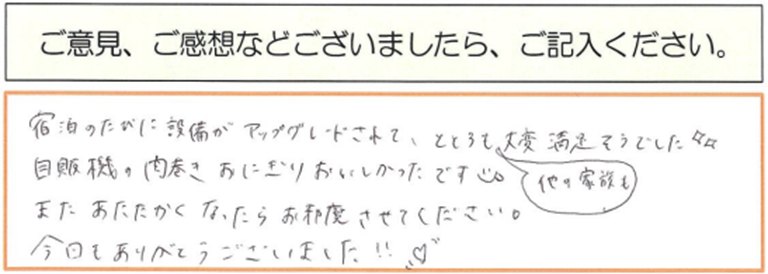 ご意見、ご感想などございましたら、ご記入ください。
宿泊のたびに設備がアップグレードされて、ととろも大変満足そうでした
他の家族も
自販機の肉巻きおにぎりおいしかったです
またあたたかくなったらお邪魔させてください。
今回もありがとうございました!!♡